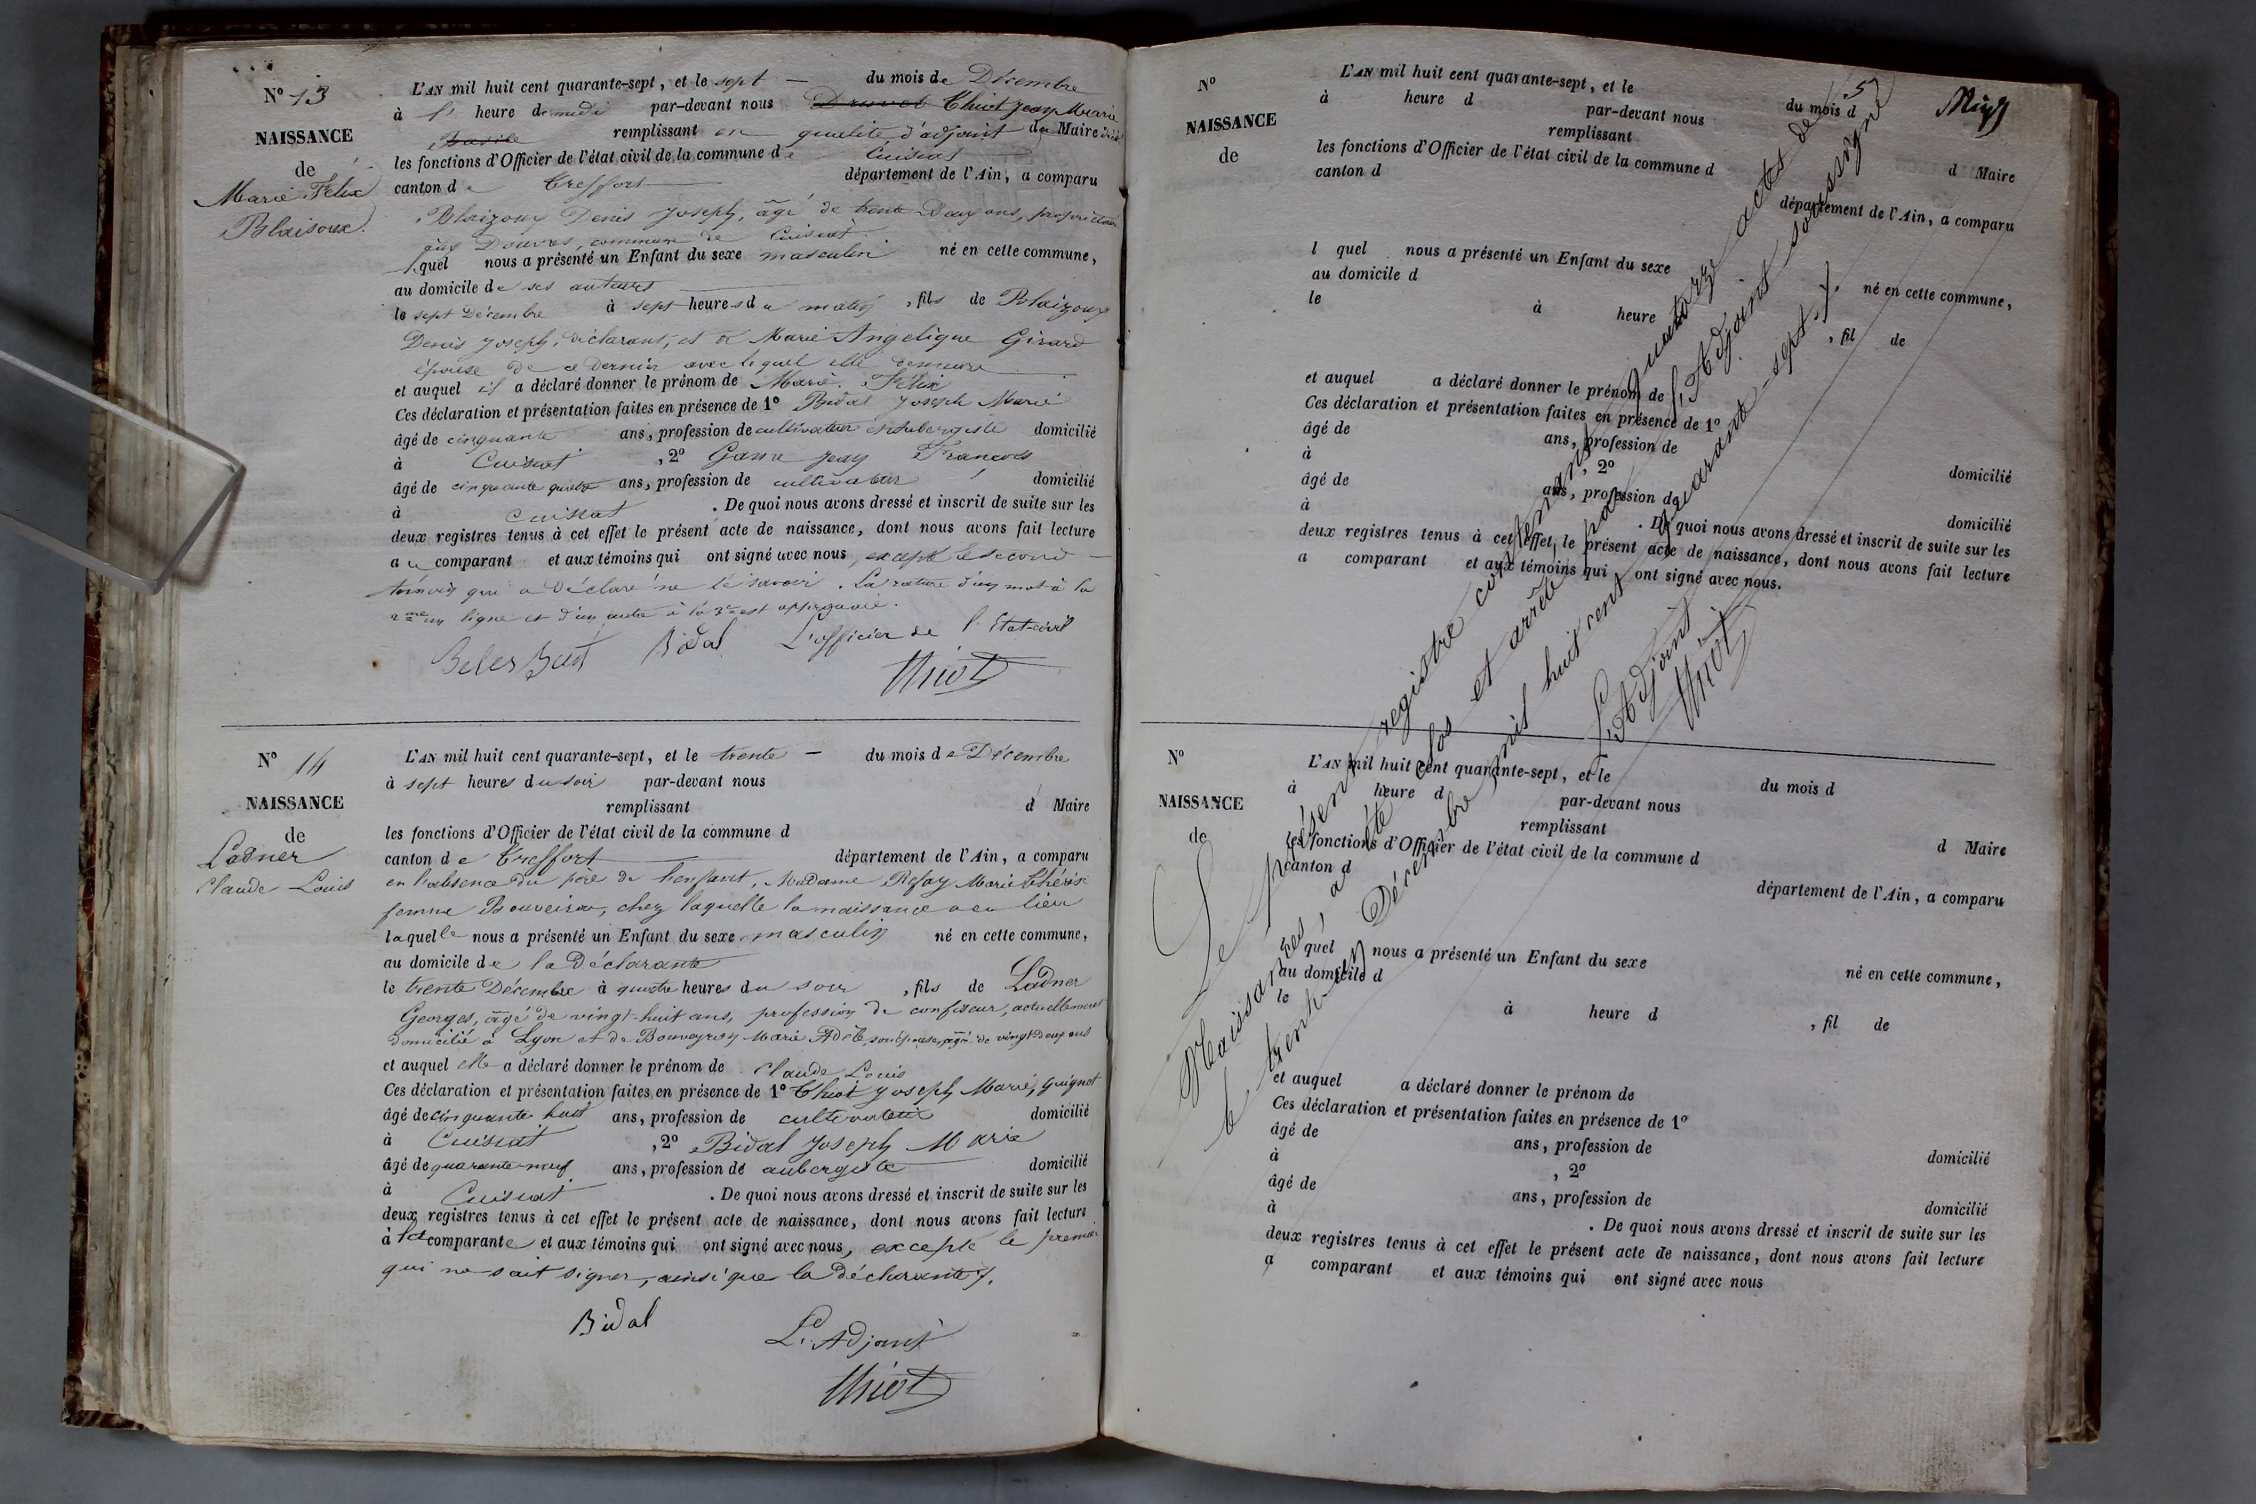 N° 13
NAISSANCE
de
Marie Félix
Blaisoux.
L'AN mil huit cent quarante-sept, et le sept — du mois de Décembre
à 1' heure de midi par-devant nous Druvel Thiot Jean Marie
Basile remplissant en qualité d'adjoint du Maire
les fonctions d'Officier de l'état civil de la commune de Cuisiat
canton de Treffort département de l'Ain, a comparu
Blaizoux Denis Joseph, âgé de trente Deux ans, propriétaire
aux Douvres, commune de Cuisiat
lequel nous a présenté un Enfant du sexe masculin né en cette commune,
au domicile de ses auteurs
le sept Décembre à sept heures du matin, fils de Blaizoux
Denis Joseph, déclarant, et de Marie Angélique Girard
épouse de ce dernier avec lequel elle demeure
et auquel il a déclaré donner le prénom de Marie Félix
Ces déclaration et présentation faites en présence de 1° Bidal Joseph Marie
âgé de cinquante ans, profession de cultivateur et aubergiste domicilié
à Cuisiat, 2° Jean François
âgé de cinquante quatre ans, profession de cultivateur domicilié
à Cuisiat. De quoi nous avons dressé et inscrit de suite sur les
deux registres tenus à cet effet le présent acte de naissance, dont nous avons fait lecture
au comparant et aux témoins qui ont signé avec nous, excepté le second
témoin qui a déclaré ne le savoir. La rature d'un mot à la
2me ligne et d'un autre à la 3e est approuvée.
Bidal L'officier de l'Etat-civil
Thiot
N° 14
NAISSANCE
de
Ladner
Claude Louis
L'AN mil huit cent quarante-sept, et le trente — du mois de Décembre
à sept heures du soir par-devant nous
remplissant d Maire
les fonctions d'Officier de l'état civil de la commune d
canton de Treffort département de l'Ain, a comparu
en l'absence du père de l'enfant, Madame Refay Marie Thérèse
femme Bouveiron, chez laquelle la naissance a eu lieu
laquelle nous a présenté un Enfant du sexe masculin né en cette commune,
au domicile de la Déclarante
le trente Décembre à quatre heures du soir, fils de Ladner
Georges, âgé de vingt-huit ans, profession de confiseur, actuellement
domicilié à Lyon et de Bouveyron Marie Adèle, son épouse, âgée de vingt deux ans
et auquel elle a déclaré donner le prénom de Claude Louis
Ces déclaration et présentation faites en présence de 1° Thiot Joseph Marie, Guignot
âgé de cinquante huit ans, profession de cultivateur domicilié
à Cuisiat, 2° Bidal Joseph Marie
âgé de quarante-neuf ans, profession de aubergiste domicilié
à Cuisiat. De quoi nous avons dressé et inscrit de suite sur les
deux registres tenus à cet effet le présent acte de naissance, dont nous avons fait lecture
à la comparante et aux témoins qui ont signé avec nous, excepté le premier
qui ne sait signer, ainsi que la déclarante.
Bidal L'Adjoint
Thiot
N°
NAISSANCE
de
L'AN mil huit cent quarante-sept, et le du mois d
à heure d par-devant nous
remplissant d Maire
les fonctions d'Officier de l'état civil de la commune d
canton d département de l'Ain, a comparu
l quel nous a présenté un Enfant du sexe né en cette commune,
au domicile d
le à heure , fil de
et auquel a déclaré donner le prénom de
Ces déclaration et présentation faites en présence de 1°
âgé de ans, profession de domicilié
à , 2°
âgé de ans, profession de domicilié
à . De quoi nous avons dressé et inscrit de suite sur les
deux registres tenus à cet effet le présent acte de naissance, dont nous avons fait lecture
a comparant et aux témoins qui ont signé avec nous.
Le présent registre contenant quatorze actes de
Naissances, a été clos et arrêté par l'Adjoint soussigné
le trente-un Décembre mil huit cent quarante-sept.
L'Adjoint
Thiot
N°
NAISSANCE
de
L'AN mil huit cent quarante-sept, et le du mois d
à heure d par-devant nous
remplissant d Maire
les fonctions d'Officier de l'état civil de la commune d
canton d département de l'Ain, a comparu
quel nous a présenté un Enfant du sexe né en cette commune,
au domicile d
le à heure d , fil de
et auquel a déclaré donner le prénom de
Ces déclaration et présentation faites en présence de 1°
âgé de ans, profession de domicilié
à , 2°
âgé de ans, profession de domicilié
à . De quoi nous avons dressé et inscrit de suite sur les
deux registres tenus à cet effet le présent acte de naissance, dont nous avons fait lecture
a comparant et aux témoins qui ont signé avec nous